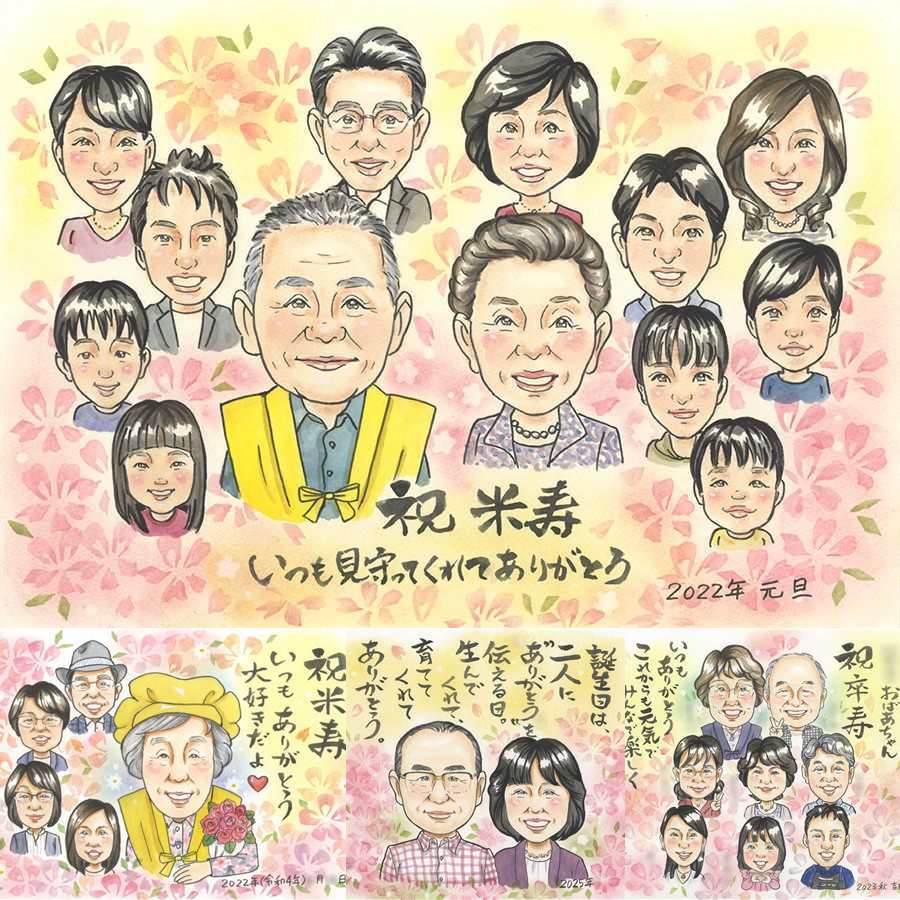 祝 米寿
いつも見守ってくれてありがとう
2022年 元旦
祝米寿
いつも ありがとう
大好きだよ
2022年(令和4年) 月 日
誕生日は、
二人に
“ありがとう”を
伝える日。
生んで
くれて、
育てて
くれて
ありがとう。
2025年
おばあちゃん
祝卒寿
いつも
ありがとう
これからも元気で
みんなで楽しく
2023秋